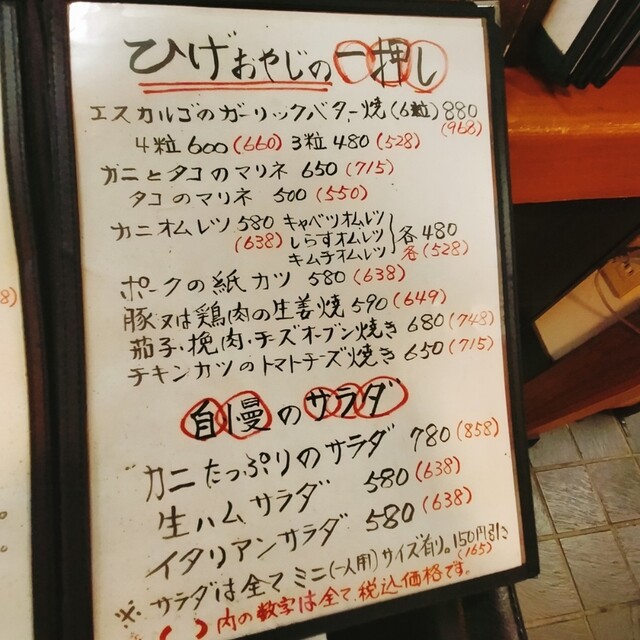 ひげおやじの一押し
エスカルゴのガーリックバター焼(6粒)880
(968)
4粒600(660) 3粒480(528)
カニとタコのマリネ 650(715)
タコのマリネ 500(550)
カニオムレツ580 キャベツオムレツ
(638) しらすオムレツ 各480
キムチオムレツ 各(528)
ポークの紙カツ 580(638)
豚又は鶏肉の生姜焼590(649)
茄子・挽肉・チーズオーブン焼き 680(748)
チキンカツのトマトチーズ焼き 650(715)
自慢のサラダ
カニたっぷりのサラダ 780(858)
生ハムサラダ 580(638)
イタリアンサラダ 580(638)
※サラダは全てミニ(一人用)サイズ有り。150円引き
(165)
※( )内の数字は全て税込価格です。